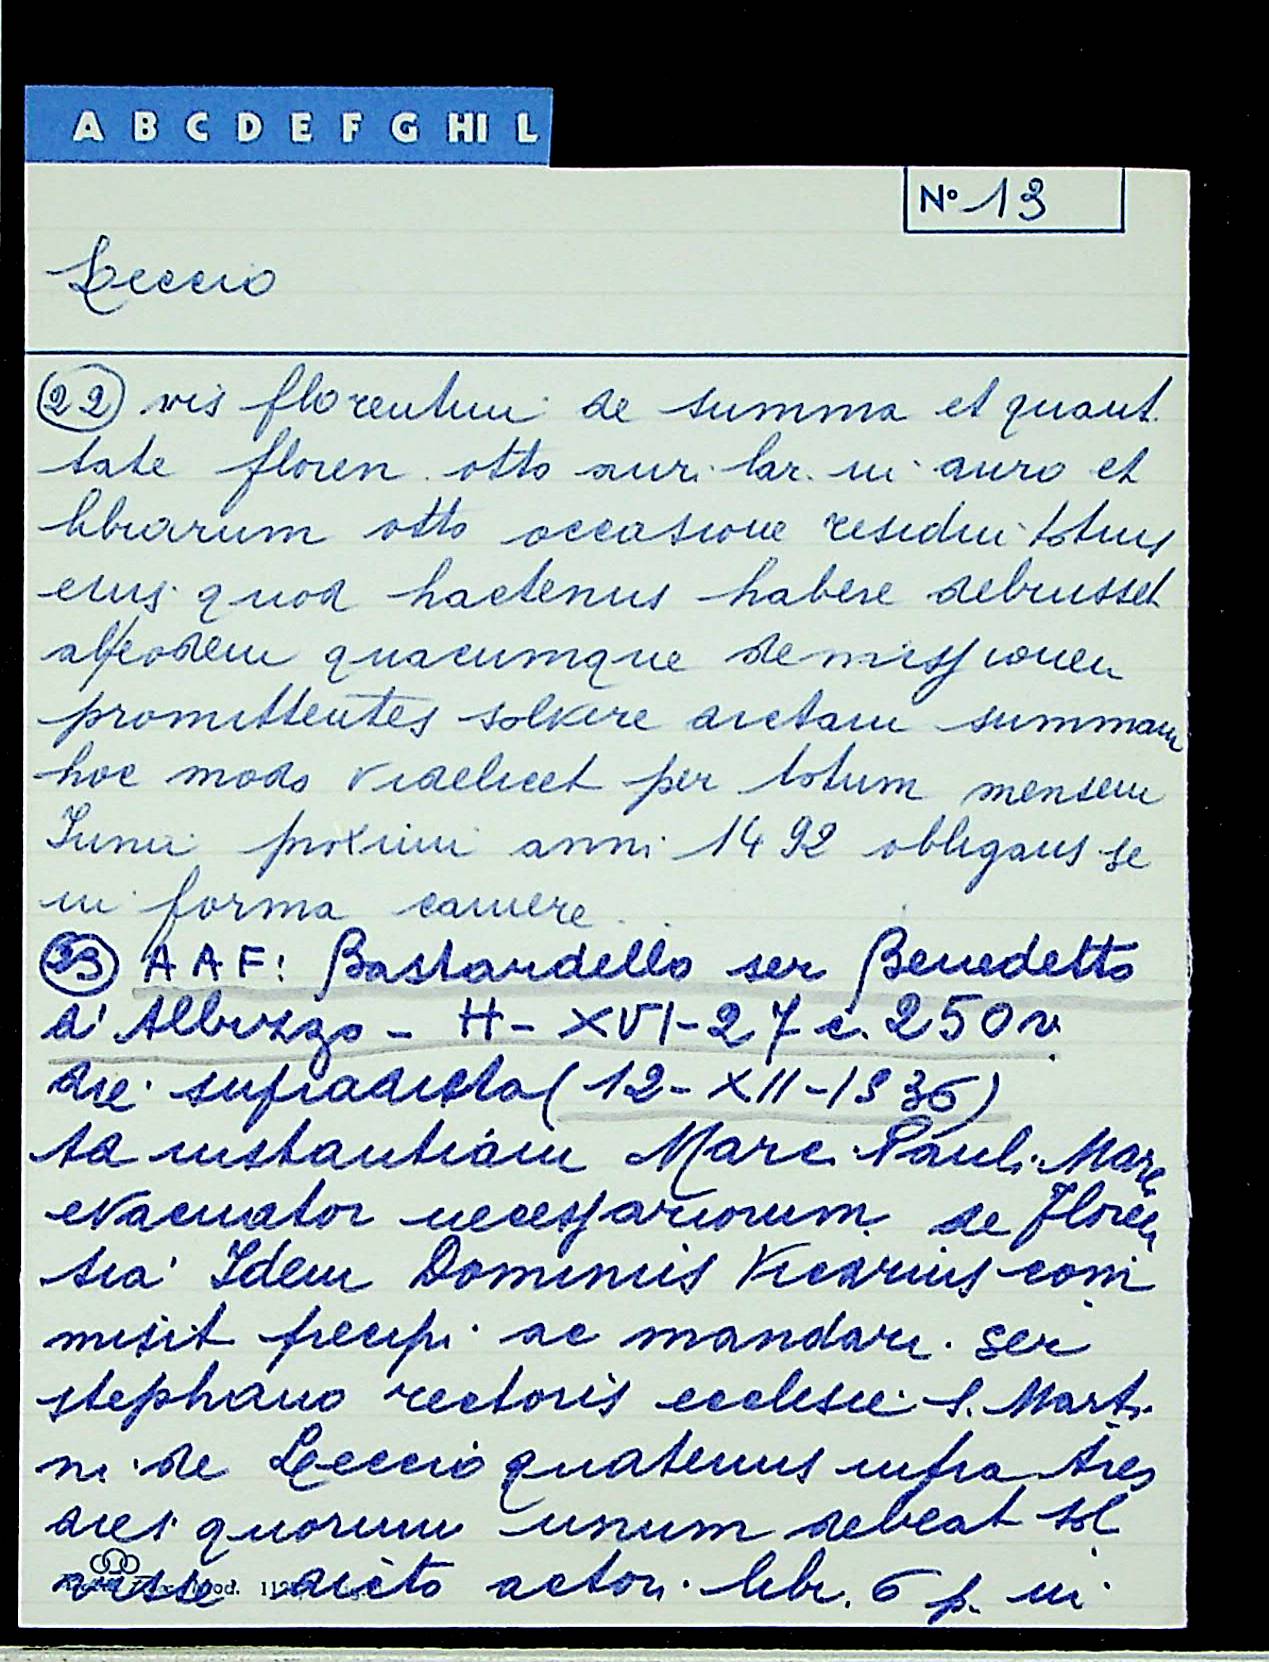 A B C D E F G HI L
Nº 13
Leccio
(22) vis florentini de summa et quanti
tate floren otto auri lar. in auro et
librarum otto occasione residui totius
eius quod hactenus habere debuisset
ab eodem quacumque de
promittentes solvere dictam summam
hoc modo videlicet per totum mensem
Iunii proximi anni 1492 obligans se
in forma camere.
(23) AAF: Bastardello ser Benedetto
d'Albizzo - H - XVI - 27 c. 250 v.
die supradicta (12 - XII - 1536)
ta instantiam Marc. Pauli Marc
evacuator necessariorum de Floren
tia Idem Dominus Vicarius com
misit precipi ac mandari ser
stephano rectoris ecclesie S. Marti
ni de Leccio quatenus infra tres
dies quorum unum debeat sol
visse dicto actori libr. 6 p. in